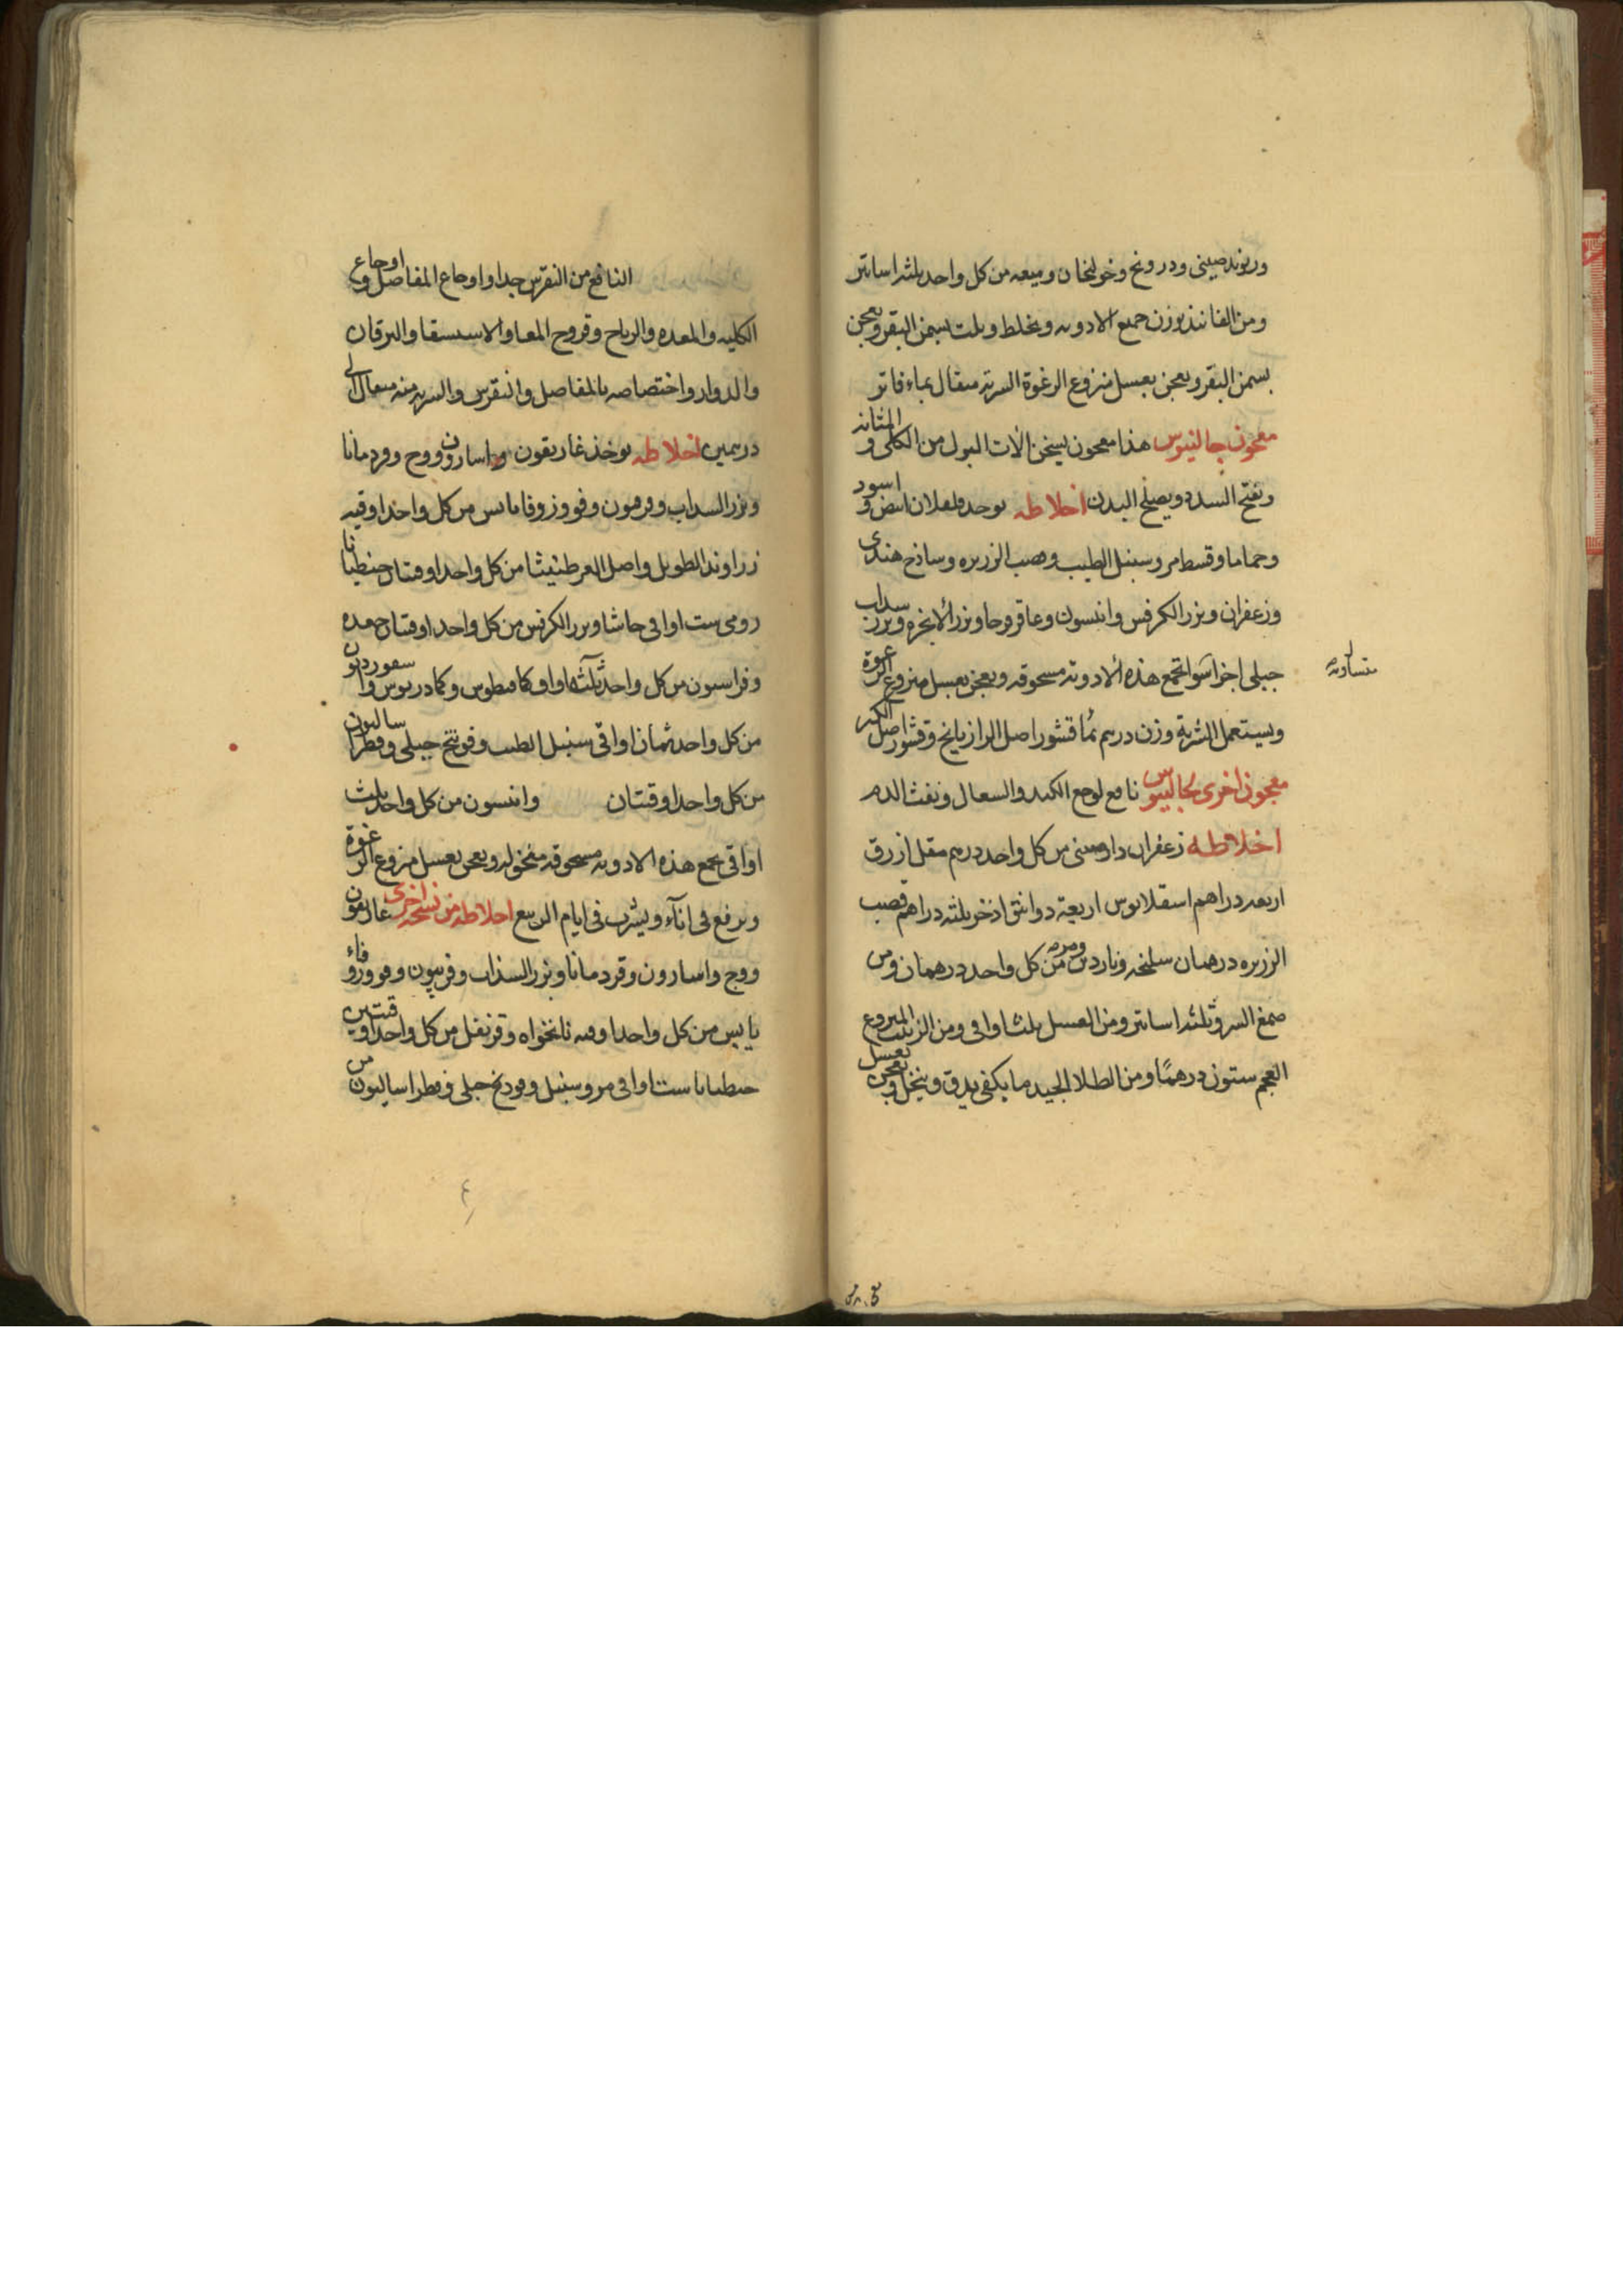 وريوند صينى ودرونج وخولنجان وميعه من كل واحد ثلثه اساتير
ومن الفانيذ بوزن جميع الادويه ويخلط ويلت بسمن البقر ويعجن
بسمن البقر ويعجن بعسل منزوع الرغوة الشربة مثقال بماء فاتر
معجون جالينوس هذا معجون يسخن الات البول من الكلى و المثانه
ويفتح السدد ويصلح البدن اخلاطه يوخذ فلفلان ابيض و اسود
وحماما وقسط مر وسنبل الطيب وقصب الزريره وساذج هندى
وزعفران وبزر الكرفس وانيسون وعاقرقرحا وبزر الانجره وبزر سداب
جبلى اجزا سوا تجمع هذه الادويه مسحوقه ويعجن بعسل منزوع الرغوة
متساويه
ويستعمل الشربة وزن درهم بماء قشور اصل الرازيانج وقشور اصل الكبر
معجون اخرى لجالينوس نافع لوجع الكبد والسعال ونفث الدم
اخلاطه زعفران دارصينى من كل واحد درهم مقل ازرق
اربعه دراهم اسقلانوس اربعة دوانق اذخر ثلثه دراهم قصب
الزريره درهمان سليخه وناردين ومر من كل واحد درهمان ومن
صمغ السرو ثلثه اساتير ومن العسل ثلث اواقى ومن الزبيب المنزوع
العجم ستون درهمًا ومن الطلا الجيد ما يكفى يدق وينخل ويعجن بعسل
النافع من النقرس جدا واوجاع المفاصل و اوجاع
الكليه والمعده والرياح وقروح المعا والاستسقا واليرقان
والدوار واختصاصه بالمفاصل والنقرس والشربه منه مثقال الى
درهمين اخلاطه يوخذ غاريقون واسارون ووج وقردمانا
وبزر السداب وفربيون وفو وزوفا يابس من كل واحد اوقيه
زراوند الطويل واصل العرطنيثا من كل واحد اوقيتان جنطيانا
رومى ست اواقى حاشا وبزر الكرفس من كل واحد اوقيتان جعده
وفراسيون من كل واحد ثلثه اواق كمافيطوس وكمادريوس واسقورديون
من كل واحد ثمان اواقى سنبل الطيب وفوتنج جبلى وفطراساليون
من كل واحد اوقيتان وانيسون من كل واحد ثلث
اواقى يجمع هذه الادويه مسحوقه منخوله ويعجن بعسل منزوع الرغوة
ويرفع فى انآء ويشرب فى ايام الربيع اخلاطه من نسخه اخرى غاريقون
ووج واسارون وقردمانا وبزر السذاب وفربيون وفو وزوفاء
يابس من كل واحد اوقيه نانخواه وقرنفل من كل واحد اوقيتين
جنطيانا ست اواقى مر وسنبل وفودنج جبلى وفطراساليون من